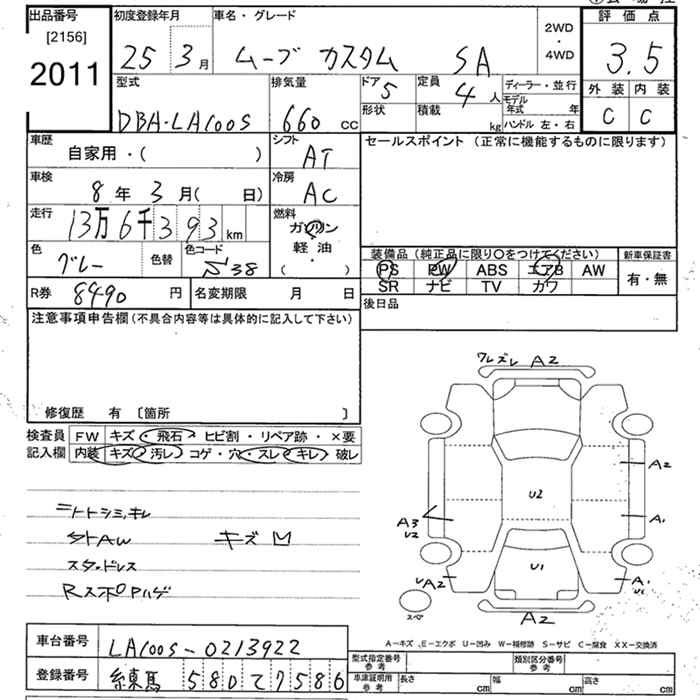 出品番号
[2156]
2011
初度登録年月
25 3月
車名・グレード
ムーブ カスタム SA
2WD
・
4WD
評価点
3.5
外装 内装
C C
型式
DBA-LA100S
排気量
660 cc
ドア
5
形状
定員
4人
積載
kg
ディーラー・並行
モデル年式 年
ハンドル 左・右
車歴
自家用・( )
シフト
AT
セールスポイント (正常に機能するものに限ります)
車検
8年 3月( 日)
冷房
AC
走行
13万6千393km
燃料
ガソリン
軽油
( )
色
グレー
色替
色コード
S38
装備品 (純正品に限り○をつけてください)
PS PW ABS エアB AW
SR ナビ TV カワ
新車保証書
有・無
R券 8490 円
名変期限 月 日
後日品
注意事項申告欄 (不具合内容等は具体的に記入して下さい)
修復歴 有 〔箇所 〕
検査員記入欄
FW キズ・飛石・ヒビ割・リペア跡・×要
内装 キズ・汚レ・コゲ・穴・スレ・キレ・破レ
ニトトシミ、キレ
StAW キズ凹
スタッドレス
RスポPハゲ
ワレズレ A2
A2
A1
U2
A3
U2
U1
A2
A1
U1
スペア
A2
A-キズ E-エクボ U-凹み W-補修跡 S-サビ C-腐食 XX-交換済
車台番号 LA100S-0213922
登録番号 練馬 580 て 7586
型式指定番号
参考
類別区分番号
参考
車庫証明用
参考
長さ cm 幅 cm 高さ cm